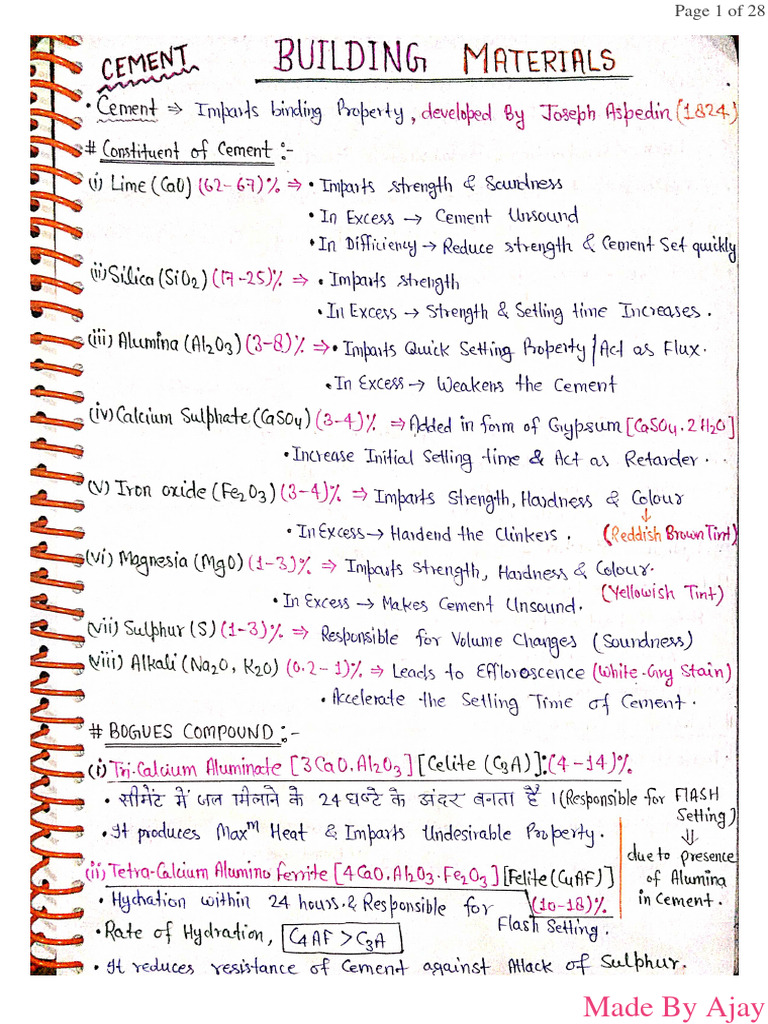 Page 1 of 28
CEMENT BUILDING MATERIALS
• Cement ⇒ Imparts binding Property, developed By Joseph Aspedin (1824)
# Constituent of Cement :-
(i) Lime (CaO) (62-67)% ⇒ • Imparts strength & Soundness
• In Excess → Cement Unsound
• In Difficiency → Reduce strength & Cement Set quickly
(ii) Silica (SiO2) (17-25)% ⇒ • Imparts strength
• In Excess → Strength & Setling time Increases.
(iii) Alumina (Al2O3) (3-8)% ⇒ • Imparts Quick Setting Property / Act as Flux.
• In Excess → Weakens the Cement
(iv) Calcium Sulphate (CaSO4) (3-4)% ⇒ Added in form of Gypsum [CaSO4.2H2O]
• Increase Initial Setling time & Act as Retarder.
(v) Iron oxide (Fe2O3) (3-4)% ⇒ Imparts Strength, Hardness & Colour
↓
• In Excess → Hardend the Clinkers. (Reddish Brown Tint)
(vi) Magnesia (MgO) (1-3)% ⇒ Imparts Strength, Hardness & Colour.
(Yellowish Tint)
• In Excess → Makes Cement Unsound.
(vii) Sulphur (S) (1-3)% ⇒ Responsible for Volume Changes (Soundness)
(viii) Alkali (Na2O, K2O) (0.2-1)% ⇒ Leads to Effloroscence (White-Gry Stain)
• Accelerate the Setling Time of Cement.
# BOGUES COMPOUND :-
(i) Tri-Calcium Aluminate [3CaO.Al2O3] [Celite (C3A)]:(4-14)%
• सीमेंट में जल मिलाने के 24 घण्टे के अंदर बनता है । (Responsible for FLASH Setting)
⇓
• It produces Maxᵐ Heat & Imparts Undesirable Property.
due to presence
of Alumina
in Cement.
(ii) Tetra-Calcium Alumino ferrite [4CaO.Al2O3.Fe2O3] [Felite (C4AF)]
(10-18)%
• Hydration within 24 hours & Responsible for Flash Setting.
• Rate of Hydration, C4AF > C3A
• It reduces resistance of Cement against Attack of Sulphur.
Made By Ajay